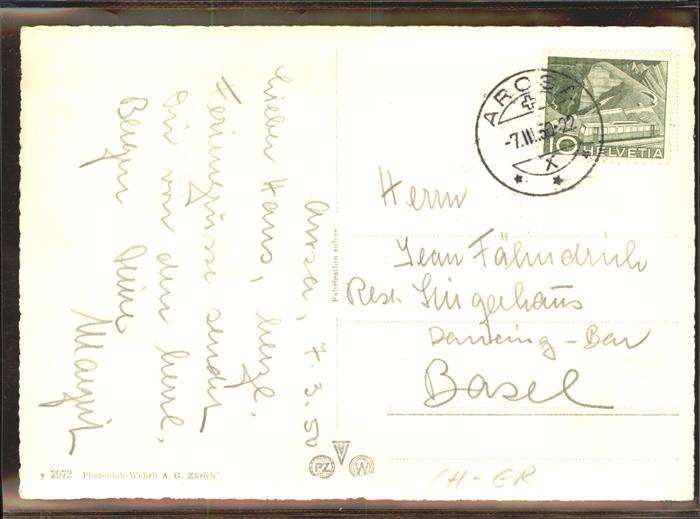 Arosa, 7.3.50
Lieber Hans, herzl.
Feriengrüsse sendet
Dir von den herrl.
Bergen Deine
Margrit
Fabrication suisse
AROSA
-7.III.50-22
X
10 HELVETIA
Herrn
Jean Fähndrich
Rest. Singerhaus
Dancing-Bar
Basel
PZ W
y 2972 Photoglob-Wehrli A. G. Zürich
CH-ER